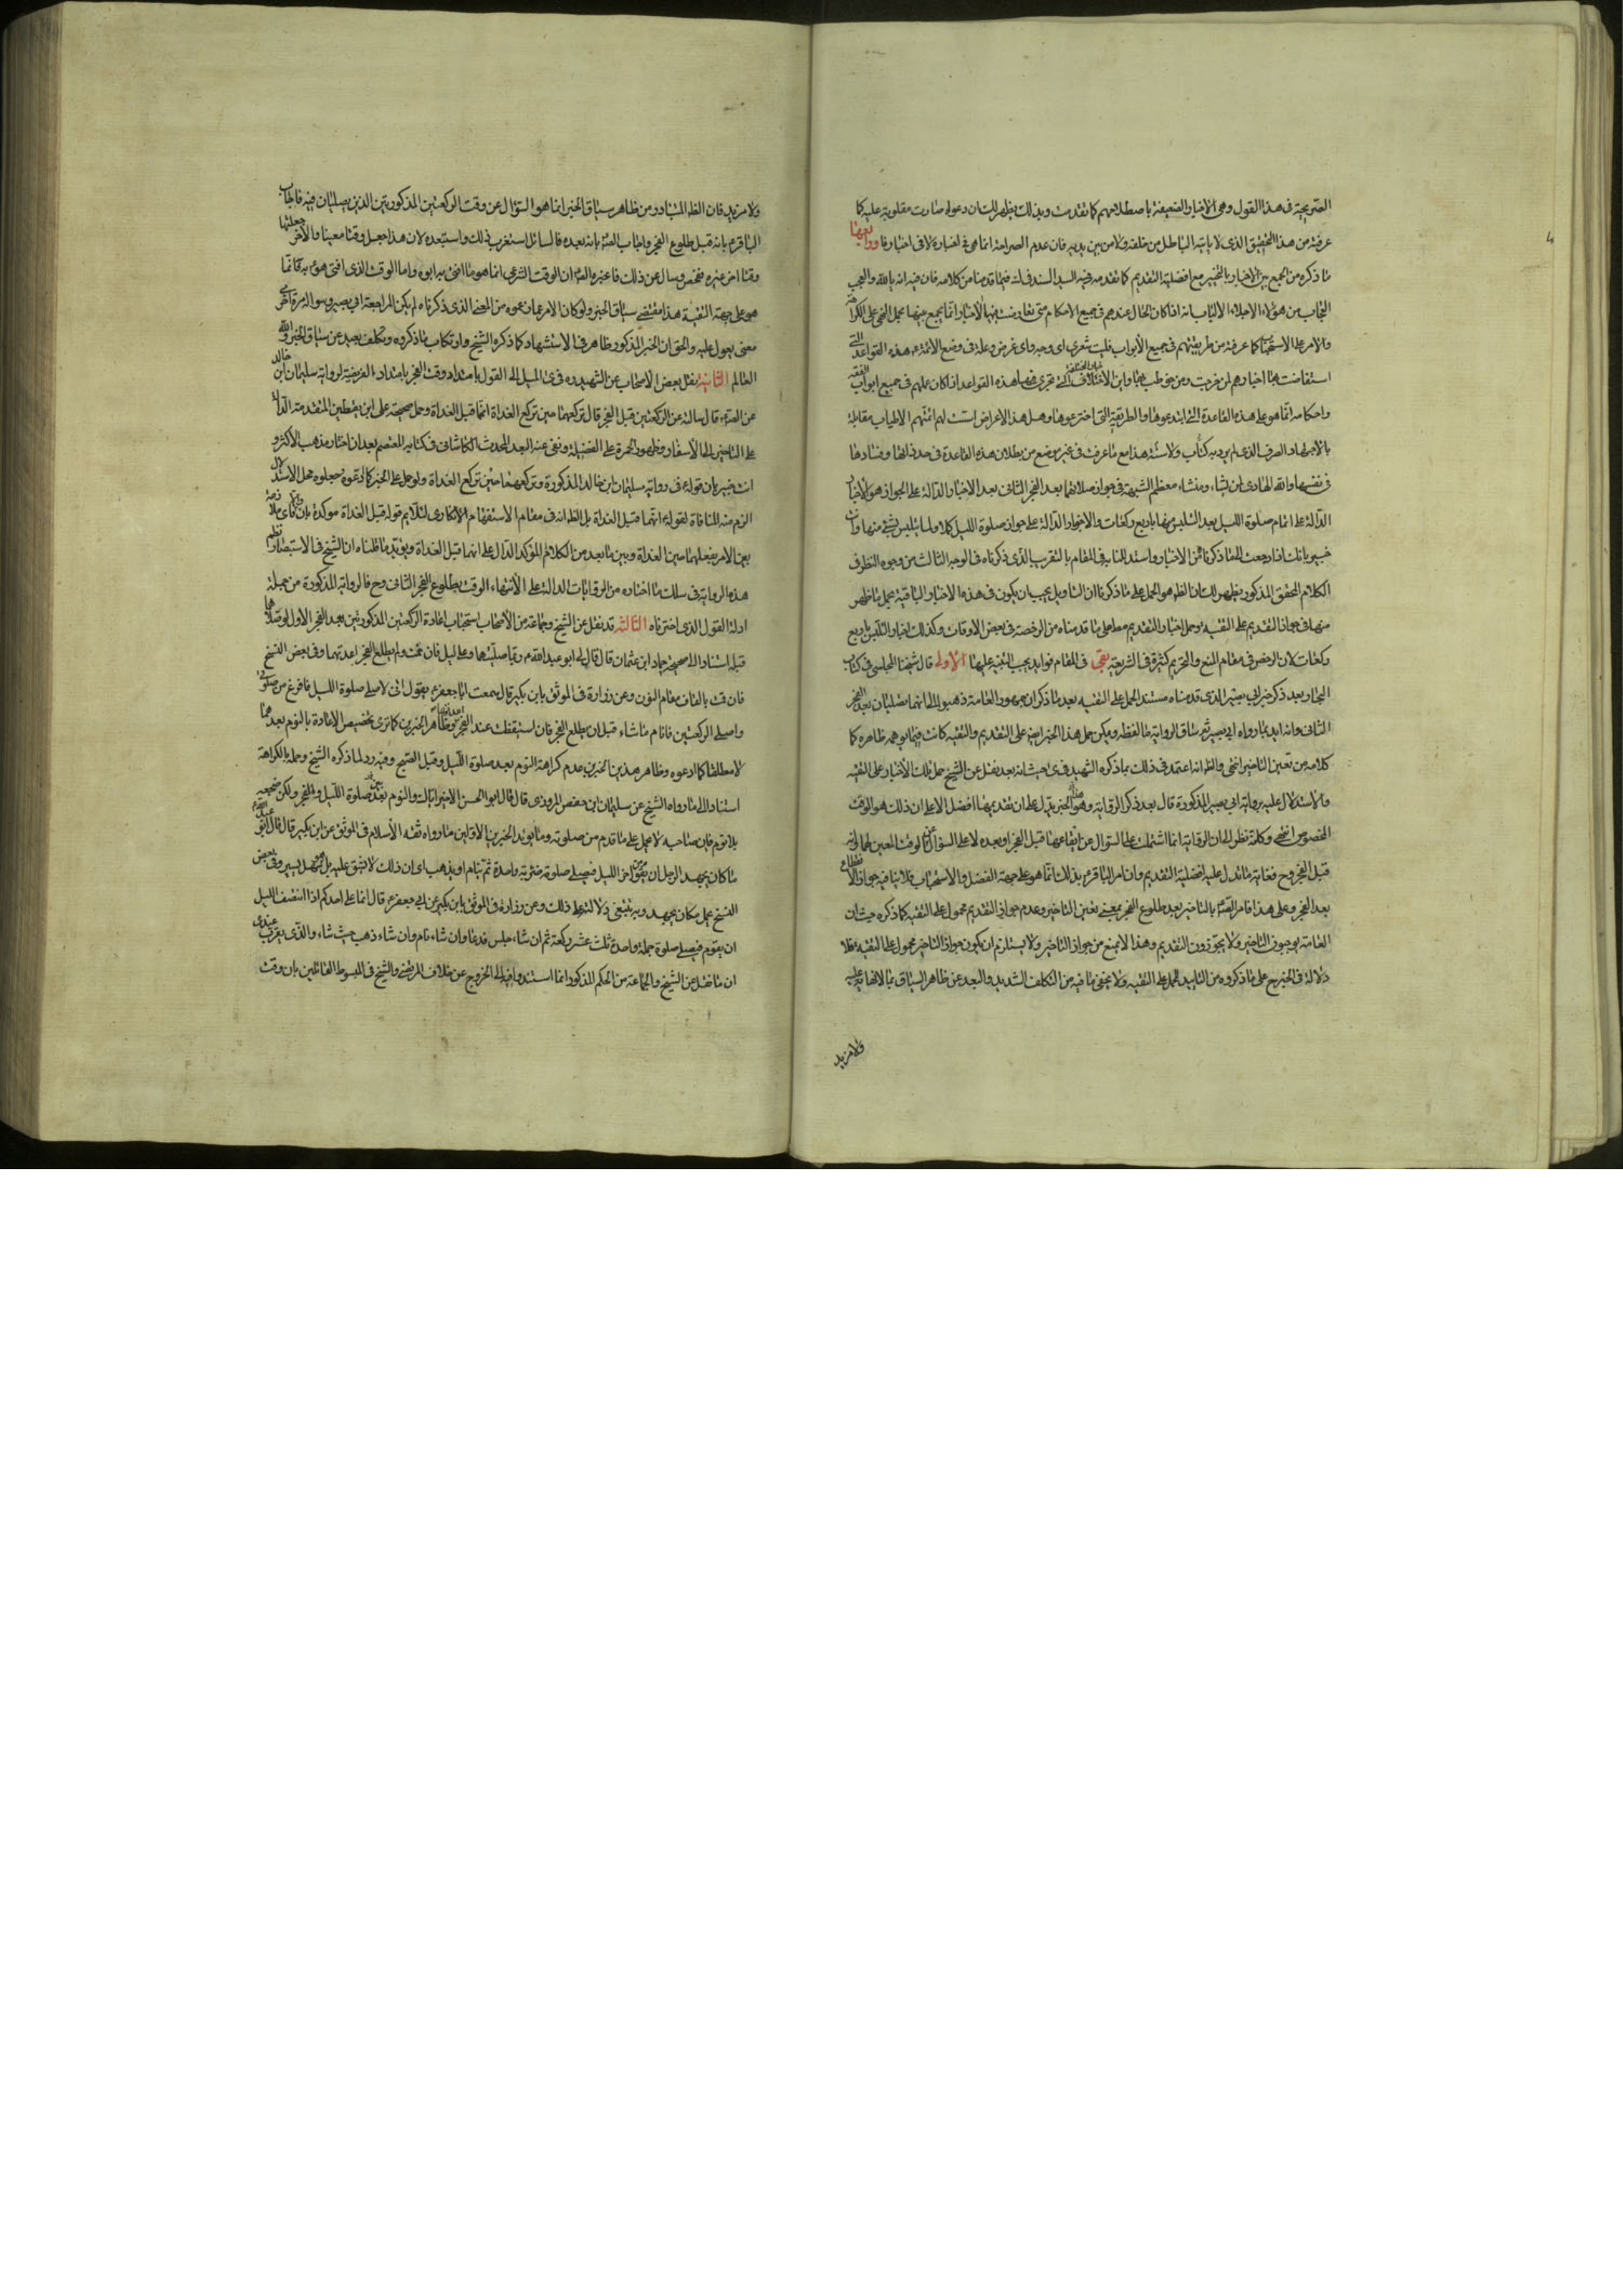 الصريحة في هذا القول وهي الاخبار الضعيفة باصطلاحهم كما تقدمت وبذلك يظهر لك ان دعواه صارت مقلوبة عليه كما
عرفته من هذا التحقيق الذي لا ياتيه الباطل من خلفه ولا من بين يديه فان عدم الصراحة انما هي في اخباره لا في اخبارنا ورابعها
ما ذكره من الجمع بين الاخبار بالتخيير مع افضلية التقديم كما تقدم فيه السيد السند في له فيما قدمنا من كلامه فان فيه انه يا لله والعجب
العجاب من هؤلاء الاجلاء الالباب انه اذا كان الحال عندهم في جميع الاحكام متى تعارضت فيها الاخبار انما يجمع بينها بحمل النهي على الكراهة
والامر على الاستحباب كما عرفته من طريقتهم في جميع الأبواب فليت شعري اى وجه واى غرض وعلة في وضع الائمة ع هذه القواعد التي
استفاضت بها اخبارهم وابن الاختلاف الذي تجري فيها هذه القواعد اذا كان عملهم في جميع ابواب الفقه
واحكامه انما هو على هذه القاعدة التي ابتدعوها والطريقة التي اخترعوها وهل هذا الاعراض لهم ائمتهم الاطياب مقابلة
بالاجتهاد الصرف الذي لم يرد به كتاب ولا سنة هذا مع ما عرفت في غير موضع من بطلان هذه القاعدة في حد ذاتها وفسادها
في نفسها والله الهادي لمن يشاء ومنشاء معظم الشبهة في جواز صلاتهما بعد الفجر الثاني بعد الاخبار الدالة على الجواز هو الأخبار
الدالة على اتمام صلوة الليل بعد التلبس منها باربع ركعات والاخبار الدالة على جواز صلوة الليل كملا ولما يتلبس بشيء منها وانت
خبير بانك اذا رجعت الى ما ذكرنا من الاخبار واستدللنا به في المقام بالتقريب الذي ذكرناه في الوجه الثالث من وجوه النظر في
الكلام المحقق المذكور يظهر لك ان الظ هو الحمل على ما ذكرنا ان التاويل يجب ان يكون في هذه الاخبار الباقية بحمل ما ظهر
منها في جواز التقديم على التقية وحمل اخبار التقديم على ما قدمناه من الرخصة في بعض الاوقات وكذلك اخبار التلبس باربع
ركعات لان الرخص في مقام المنع والتحريم كثيرة في الشريعة بقي في المقام فوايد يجب التنبيه عليها الاولى قال شيخنا المجلسي في كتاب
البحار بعد ذكر خبر ابي بصير الذي قدمناه مستند الحمل على التقية بعد ما ذكر ان جمهور العامة ذهبوا الى انهما تصليان بعد الفجر
الثاني وانه ايد بما رواه ابي بصير ثم ساق الرواية ما لفظه ويمكن حمل هذا الخبر ايض على التقديم والتقية كانت فيما يوهمه ظاهره كما
كلامه من تعين التاخير انتهى والظ انه اعتمد في ذلك بما ذكره الشهيد في ى حيث انه بعد نقل عن الشيخ حمل تلك الأخبار على التقية
والاستدلال عليه برواية ابي بصير المذكورة قال بعد ذكر الرواية وهذا الخبر يدل على ان تقديمها افضل الا على ان ذلك هو الوقت
المخصوص انتهى وكلامه نظر الى ان الرواية انما اشتملت على السؤال عن ايقاعهما قبل الفجر او بعده لا على السؤال عن الوقت المعين لهما وانه
قبل الفجر وح فغاية ما تدل عليه افضلية التقديم وان امر الباقر ع بذلك انما هو على جهة الفضل والاستحباب فلا ينافيه جواز الايقاع
بعد الفجر وعلى هذا فامر الصادق ع بالتاخير بعد طلوع الفجر بمعنى تعين التاخير وعدم جواز التقديم محمول على التقية كما ذكره حيث ان
العامة يوجبون التاخير ولا يجوزون التقديم وهذا لا يمنع من جواز التاخير ولا يستلزم ان يكون جواز التاخير محمول على التقية فلا
دلالة في الخبر ح على ما ذكروه من التاييد للحمل على التقية ولا يخفى ما فيه من التكلف الشديد والبعد عن ظاهر السياق بما لا نهاية عليه
ولا مزيد
ولا مزيد فان الظ المتبادر من ظاهر سياق الخبر انما هو السؤال عن وقت الركعتين المذكورتين الذي يصليان فيه فاجاب
الباقر ع بانه قبل طلوع الفجر واجاب الصادق ع بانه بعده فالسائل استغرب ذلك واستبعده لان هذا جعل وقتا معينا والآخر جعل لهما
وقتا اخر غيره ففحص وسال عن ذلك فاخبره الصادق ع ان الوقت الشرعي انما هو ما افتى به ابوه واما الوقت الذي افتى هو ع به فانما
هو على جهة التقية هذا مقتضى سياق الخبر ولو كان الامر على ما زعموه من المعنى الذي ذكرناه لم يكن لمراجعة ابي بصير وسواله مرة اخرى
معنى يعول عليه والحق ان الخبر المذكور ظاهر في الاستشهاد كما ذكره الشيخ وارتكاب ما ذكروه تكلف بعيد عن سياق الخبر والله
العالم الثانية نقل بعض الاصحاب عن الشهيد ره في ى الميل الى القول بامتداد وقت الفجر بامتداد الفريضة لرواية سليمان ابن خالد
عن الصادق ع قال سالته عن الركعتين قبل الفجر قال تركعهما حين تركع الغداة انهما قبل الغداة وحمل صحيحة علي ابن يقطين المتقدمة الدالة
على التاخير الى الأسفار وظهور الحمرة على الفضيلة ونفى عنه البعد المحدث الكاشاني في كتابه المعتصم بعد ان اختار مذهب الأكثر و
انت خبير بان قوله ع في رواية سليمان ابن خالد المذكورة وتركعهما حين تركع الغداة ولو حمل على الخبر كما ادعوه وجعلوه محل الاستدلال
الزم منه المنافاة لقوله انهما قبل الغداة بل الظ انه في مقام الاستفهام الانكاري لتلايم قوله قبل الغداة موكدة
بين الامر بفعلهما حين الغداة وبين ما بعده من الكلام المؤكد الدال على انهما قبل الغداة ويؤيد ما قلناه ان الشيخ في الاستبصار نظم
هذه الرواية في سلك ما اختاره من الروايات الدالة على الأنتهاء الوقت بطلوع الفجر الثاني وح فالرواية المذكورة من جملة
ادلة القول الذي اخترناه الثالثة قد نقل عن الشيخ وجماعة من الأصحاب استحباب اعادة الركعتين المذكورتين بعد الفجر الاول لو صلاهما
قبله استنادا الى صحيحة حماد ابن عثمان قال قال لي ابو عبد الله ع ربما صليتهما وعلي ليل فان نمت ولم يطلع الفجر اعدتهما وفي بعض النسخ
فان قمت بالقاف مقام النون وعن زرارة في الموثق بابن بكير قال سمعت ابا جعفر ع يقول اني لاصلي صلوة الليل فافرغ من صلوتي
واصلي الركعتين فانام ما شاء قبل ان يطلع الفجر فان استيقظت عند الفجر اعدتهما وظاهر الخبرين كما ترى تخصيص الاعادة بالنوم بعدهما
لا مطلقا كما ادعوه وظاهر هذين الخبرين عدم كراهة النوم بعد صلوة الليل وقبل الصبح وفيه رد لما ذكره الشيخ وحمله بالكراهة
استنادا الى ما رواه الشيخ عن سليمان ابن حفص المروزي قال قال ابو الحسن الاخير اياك والنوم بين صلوة الليل والفجر ولكن ضجعه
بلا نوم فان صاحبه لا يحمد على ما قدم من صلوته ومما يؤيد الخبرين الاولين ما رواه ثقة الأسلام في الموثق عن ابن بكير قال قال ابو عبد الله ع
ما كان يجهد الرجل ان يقوم من اخر الليل فيصلي صلوته ضربة واحدة ثم ينام او يذهب اى ان ذلك لا يشق عليه بل هو سهل يسير وفي بعض
النسخ يحمل مكان يجهد وعن زرارة في الموثق بابن بكير عن ابي جعفر ع قال انما على احدكم اذا انتصف الليل
ان يقوم فيصلي صلوة جملة واحدة ثلث عشر ركعة ثم ان شاء جلس فدعا وان شاء نام وان شاء ذهب حيث شاء والذي يقرب عندي
ان ما نقل عن الشيخ والجماعة من الحكم المذكور انما استندوا فيه الى الخروج عن خلاف المرتضى والشيخ في المبسوط القائلين بان وقت